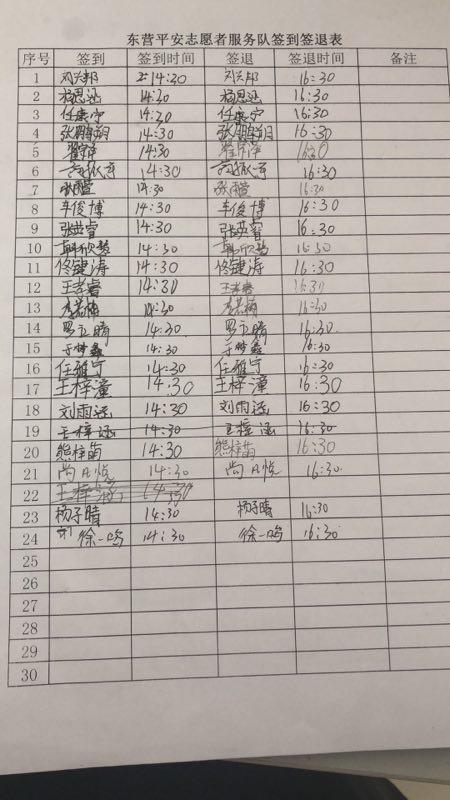 东营平安志愿者服务队签到签退表
序号 签到 签到时间 签退 签退时间 备注
1 刘兴邦 14:30 刘兴邦 16:30
2 杨思涵 14:30 杨思涵 16:30
3 任家宁 14:30 任家宁 16:30
4 张鹏翔 14:30 张鹏翔 16:30
5 14:30
6 14:30 16:30
7 张 14:30 张 16:30
8 车俊博 14:30 车俊博 16:30
9 张英睿 14:30 张英睿 16:30
10 韩欣 14:30 韩欣 16:30
11 佟键涛 14:30 佟键涛 16:30
12 王孝睿 14:30 王孝睿 16:30
13 李 14:30 李 16:30
14 罗 晴 14:30 罗 晴 16:30
15 于 鑫 14:30 于 鑫 16:30
16 任雅宁 14:30 任雅宁 16:30
17 王梓潼 14:30 王梓潼 16:30
18 刘雨涵 14:30 刘雨涵 16:30
19 王梓涵 14:30 王梓涵 16:30
20 熊梓萌 14:30 熊梓萌 16:30
21 尚 悦 14:30 尚 悦 16:30
22 王梓涵 14:30
23 杨子晴 14:30 杨子晴 16:30
24 徐一鸣 14:30 徐一鸣 16:30
25
26
27
28
29
30